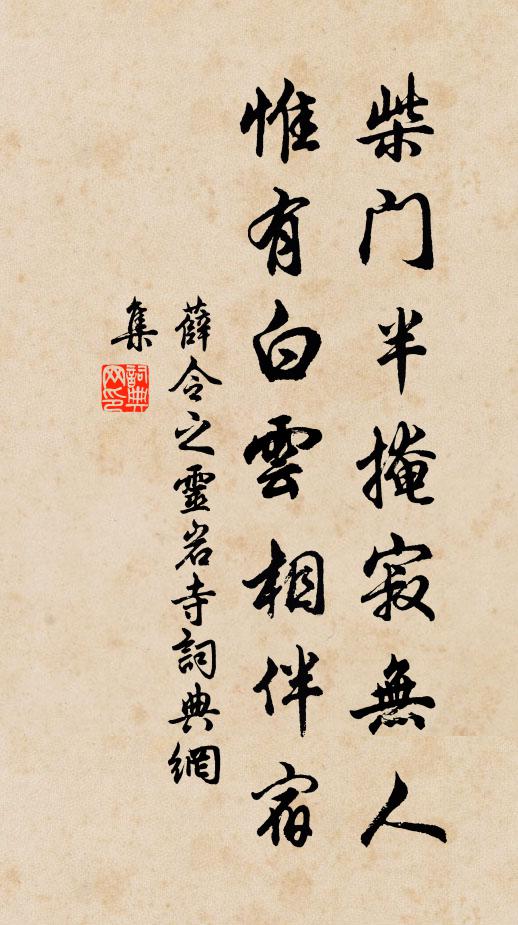 柴門半掩寂無人
惟有白雲相伴宿
薛令之靈岩寺詞典網
集
詞典網印